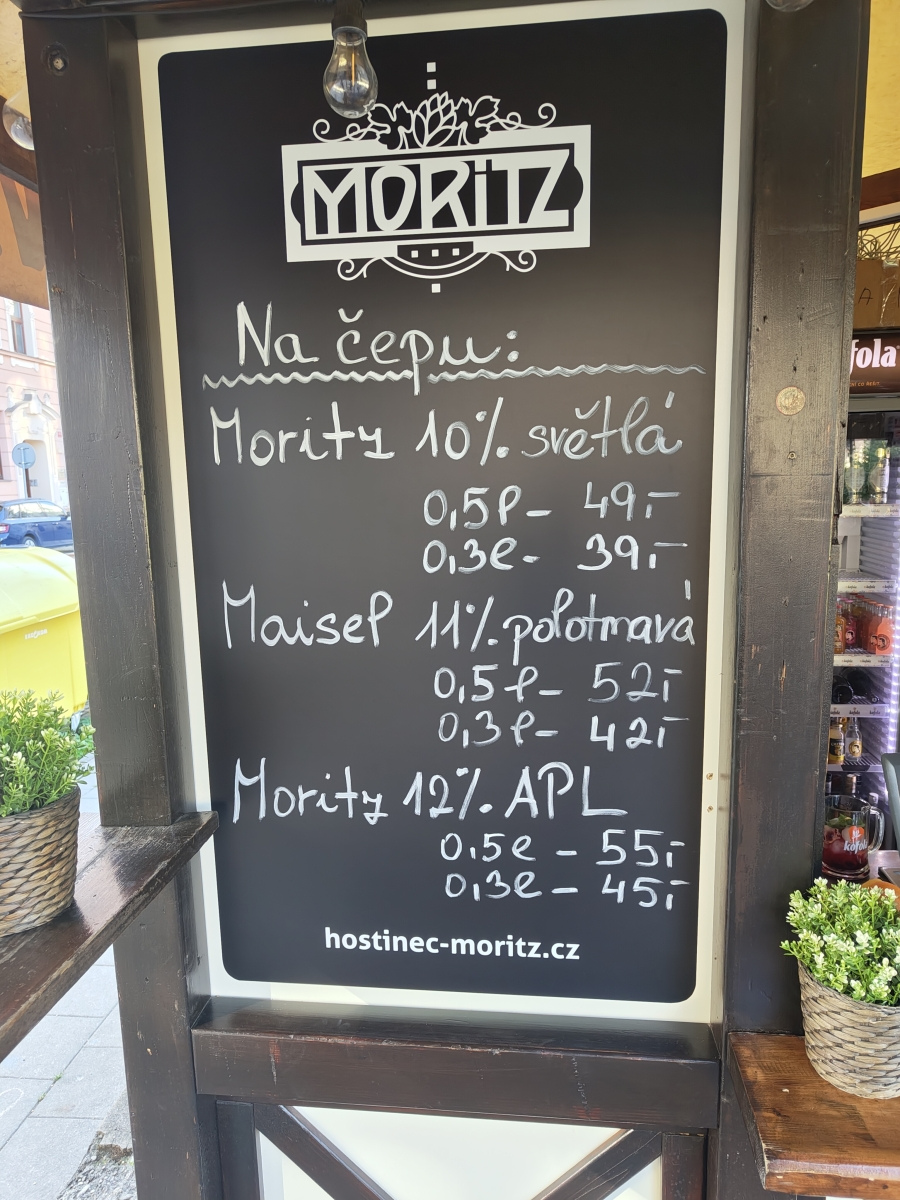 MORITZ
Na čepu:
Moritz 10% světlá
0,5l - 49,-
0,3l - 39,-
Maisel 11% polotmavá
0,5l - 52,-
0,3l - 42,-
Moritz 12% APL
0,5l - 55,-
0,3l - 45,-
hostinec-moritz.cz
fola
kofola